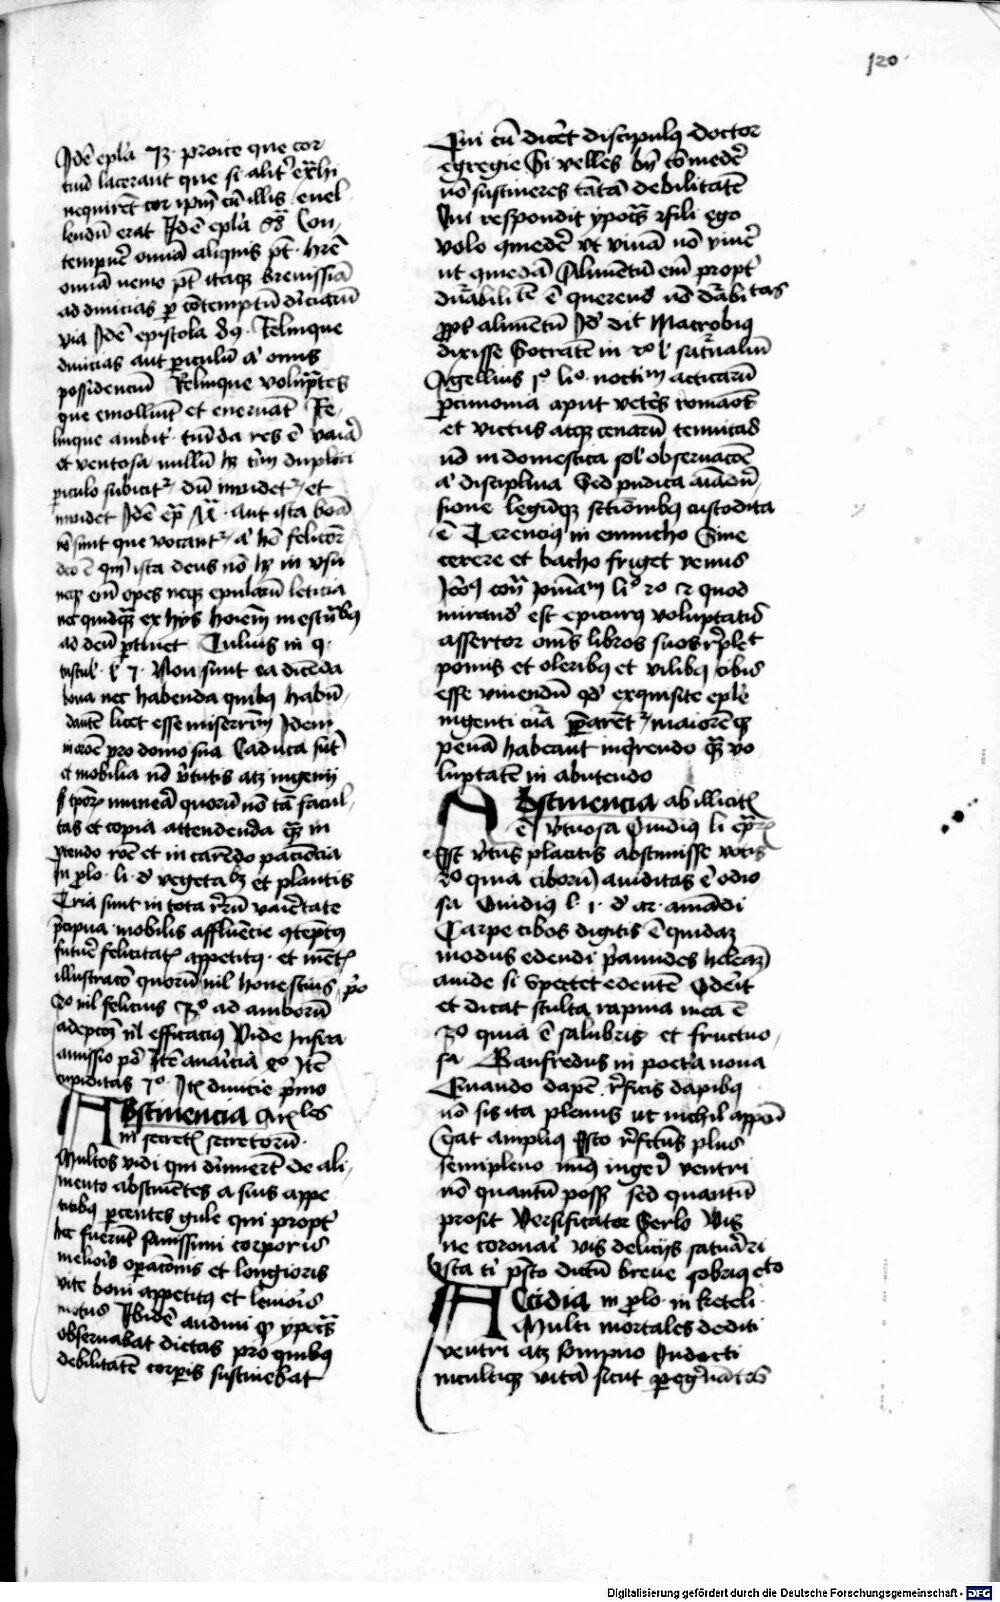 120
Idē ep̄la 73 · proice que cor
tuū lacerant que si alit̄ ex̄hi
nequirēt cor ip̄m cū illis euel
lendū erat Idē ep̄la Con
tempnē omia aliquis pt̄ · hr̄e
omia nemo pt̄ itaqꝫ breuissīa
ad diuicias ꝑ cōtemptū diuiciarū
via Idē epistola · Relinque
diuicias aut ꝑiculū aꝰ onus
possidenciū Relinque volup̄tes
que emolliūt et eneruāt Re
linque ambit̄ · tumida res ē vana
et ventosa nullū hꝫ t̄im duplici
ꝑiculo subicit̄ dū inuidet̄ et
inuidet Idē ep̄ · aut ista boā
nō sūnt que vocant̄ aꝰ hō felicior
deo ē qm̄ ista deus nō hꝫ in vsu
neqꝫ em̄ opes neqꝫ epularū leticia
nec quidq̄ꝫ ex hijs hoiem inestūbꝰ
ad deū ꝑtinet Tulius in q̇ ·
tuscul · l 7 · Non sunt ea dicēda
bona nec habenda quibꝰ habū
dantē licet esse miserrim̄ Idem
in or̄oe pro domo sua Caduca sūt
et mobilia nō v̄tutis atqꝫ ingenij
sꝫ tp̄oꝝ munera quorū nō tā facul
tas et copia attendenda q̄ꝫ in
vtendo rōe et in carēdo paciēcia
In ꝓlo · li · d̄ vegetabꝫ et plantis
Tria sunt in tota rerū varietate
p̄cipua · mobilis affluēcie ↄtēptꝰ
future felicitatꝭ appetitꝰ · et mētꝭ
illustracō quorū nil honestius pō
2° nil felicius 3° ad amborū
adepcōꝫ nil efficacius Vide Infra
amissio p° Itē auaricia 2° Itē
cupiditas 7° · Itꝭ diuicie p̄mo
ABstinencia Arꝭles
in secretꝭ secretorū ·
Multos vidi qui diuiuert̄ de ali
mento abstinētes a suis appe
titibꝰ ꝑcentes gule qui propt̄
hec fuerūt sanissimi corporis
melior̄is oꝑacōnis et longioris
vite boni appetitꝰ et leuior̄is
motus Ibidē audiui qꝫ ypoc̄s
obseruabat dictas pro quibꝰ
debilitatē corꝑis sustinebat
Qui cū dicēt discipulꝰ doctor
egregie Si velles bn̄ comedē
nō sustineres tātā debilitatē
Cui respondit ypoc̄s fili ego
volo ↄmedē vt viuā nō viuē
ut ↄmedā Alimētū em̄ propt̄
durabilitē ē querend̄ nō durabitas
ꝓpt̄ alimētū Id̄ dit Macrobiꝰ
dixisse Socratē in 2° l̄ saturnaliū
Agellius 1° li° · noctim̄ acticarū
ꝑcimonia aput vetēs romāos
et victus atqꝫ cenarū tenuitas
nō in domestica sol̄ obseruacōe
aꝰ disciplina Sed pudica aiaduē
sione legūqꝫ sctionibꝰ custodita
ē Terenciꝰ in eunucho Sine
cerere et bacho friget venus
Ieōꝰ cont̄ Iouiniam̄ li° 2° 12 quod
mirand̄ est epicurꝰ voluptatū
assertor om̄s libros suos replet
pomis et oleribꝰ et vilibꝰ cibis
esse viuendū qd̄ exquisite epule
ingenti cura ꝑarent̄ maiorēqꝫ
penā habeant inq̄rendo q̄ꝫ vo
luptatē in abutendo
ABstinencia ab illicitꝭ
ē v̄tuosa Ouidiꝰ li ep̄rꝭ
Est v̄tus placitis abstinuisse votis
2° quia ciborū auiditas ē odio
sa Ouidiꝰ l · 1 · d̄ ar · amādi
Carpe cibos digitis ē quidaꝫ
modus edendi p̄amides helenaꝫ
auide si spectet edentē Oderit
et dicat stulta rapina mea ē
3° quia ē salubris et fructuo
sa Ganfredus in poet̄a noua
Quando dapē r̄ficis dapibꝰ
nō sis ita plenus ut nichil appoī
Queat ampliꝰ Esto r̄fertūs plus
semipleno nūqꝫ ingerī ventri
nō quantū possꝫ sed quantū
prosit Versificator Serlo Vis
ne coronari vis delicijs saturari
Ista ti p̄sto dictū breue sobriꝰ esto
ACcidia in ꝓlo · in keteli ·
Multi mortales dediti
ventri atqꝫ sompno Indocti
incultiqꝫ vitā sicut ꝑeg̊nātes
Digitalisierung gefördert durch die Deutsche Forschungsgemeinschaft - DFG